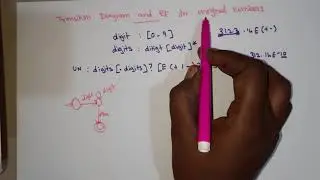 Transition Diagram and RE for unsigned numbers
digit : [0, 9]
digits : digit [digit]*
312.3 · 14 E (+ -)
UN : digits [. digits] ? [E (+ | -)
312 · 14 E - 10
digit
digit